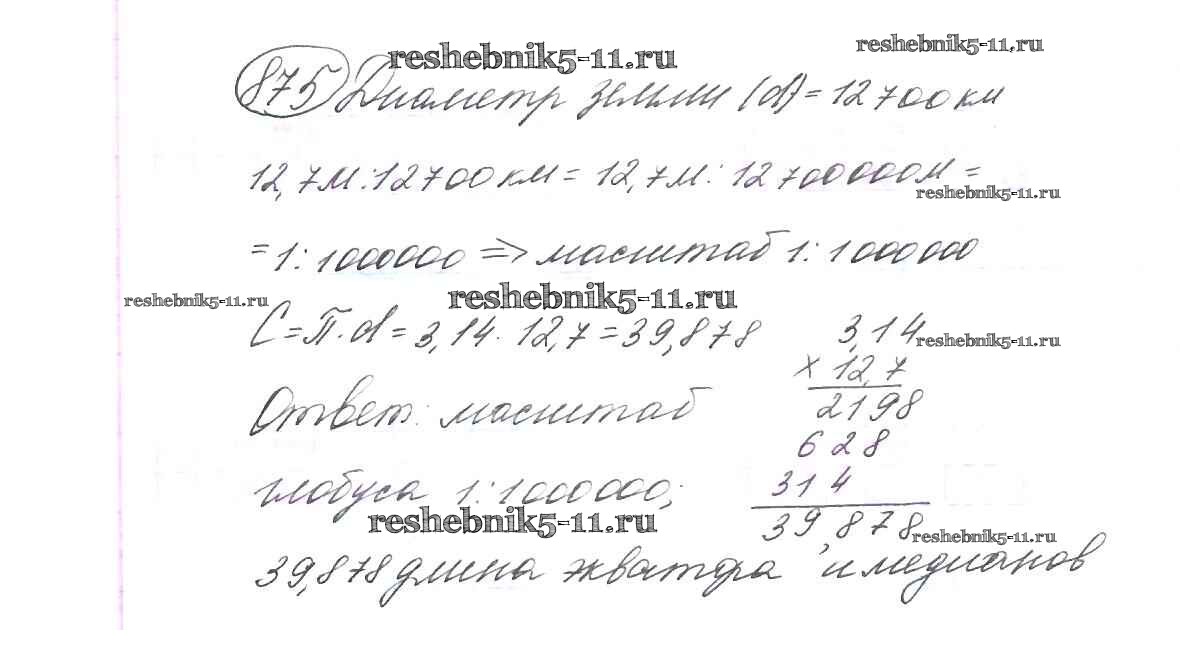 reshebnik5-11.ru
reshebnik5-11.ru
875 Диаметр земли (d) = 12700 км
12,7м:12700 км = 12,7м: 12700000м =
reshebnik5-11.ru
= 1:1000000 => масштаб 1:1000000
reshebnik5-11.ru
reshebnik5-11.ru
C = П·d = 3,14·12,7 = 39,878
3,14
reshebnik5-11.ru
x 12,7
Ответ: масштаб
2198
628
глобуса 1:1000000;
314
reshebnik5-11.ru
39,878
reshebnik5-11.ru
39,878 длина экватора и медианов